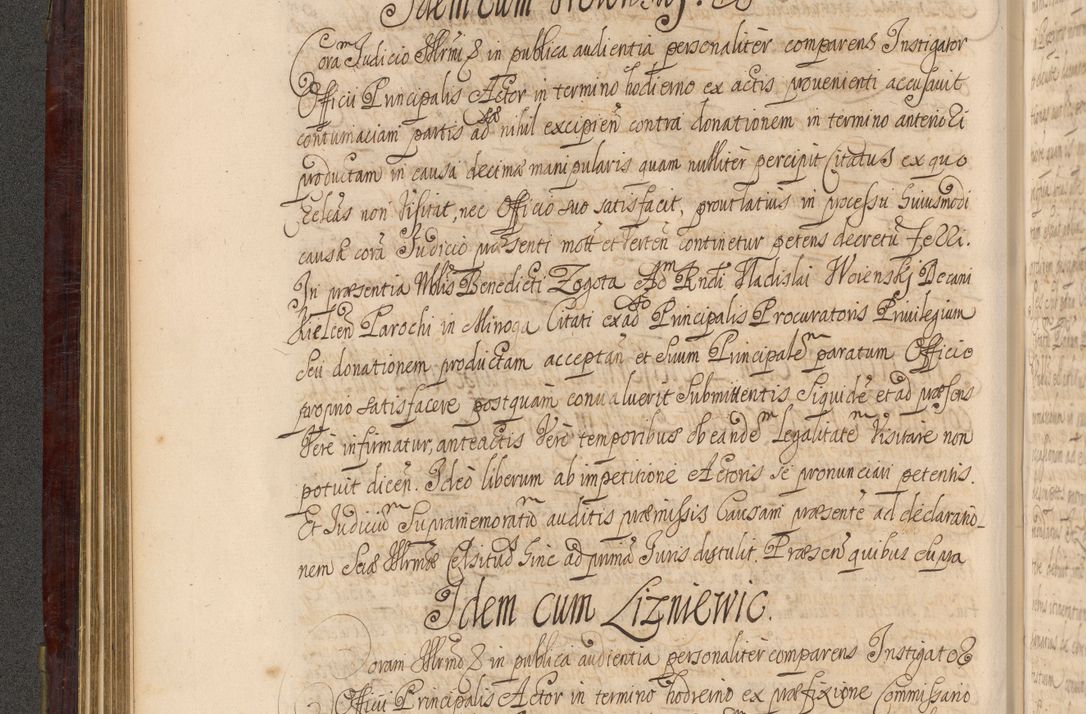 Idem cum
Coram Judicio Illrmi & in publica audientia personaliter comparens Instigator
Officii Principalis Actor in termino hodierno ex actis provenienti accusavit
contumaciam partis ad nihil excipien contra donationem in termino anteriori
productam in causa decimæ manipularis quam nulliter percipit Citatus ex quo
Eclias non Visitat, nec Officio suo satisfacit, prout latius in processu huiusmodi
causæ corã Judicio præsenti mott et verten continetur petens decretũ felli.
In præsentia Nblis Benedicti Zogota Ad Rndi Vladislai Woienskj Decani
Kielcen Parochi in Minoga Citati ex ad Principalis Procuratoris Privilegium
seu donationem productam acceptan et suum Principalem paratum Officio
proprio satisfacere postquam convaluerit submittentis siquidẽ et ad præsens
Vere infirmatur, anteactis Vere temporibus ob eandem legalitatem Visitare non
potuit dicen. Ideo liberum ab impetitione Actoris se pronunciari petentis.
Et Judicium supramemoratum auditis præmissis Causam præsentẽ ad declaratio-
nem Suæ Illrmæ Celsitudis hinc ad primã Juris distulit. Præsen quibus supra
Idem cum Lizniewic.
Coram Illrmo & in publica audientia personaliter comparens Instigator
Officii Principalis Actor in termino hodierno ex præfixione Commissario